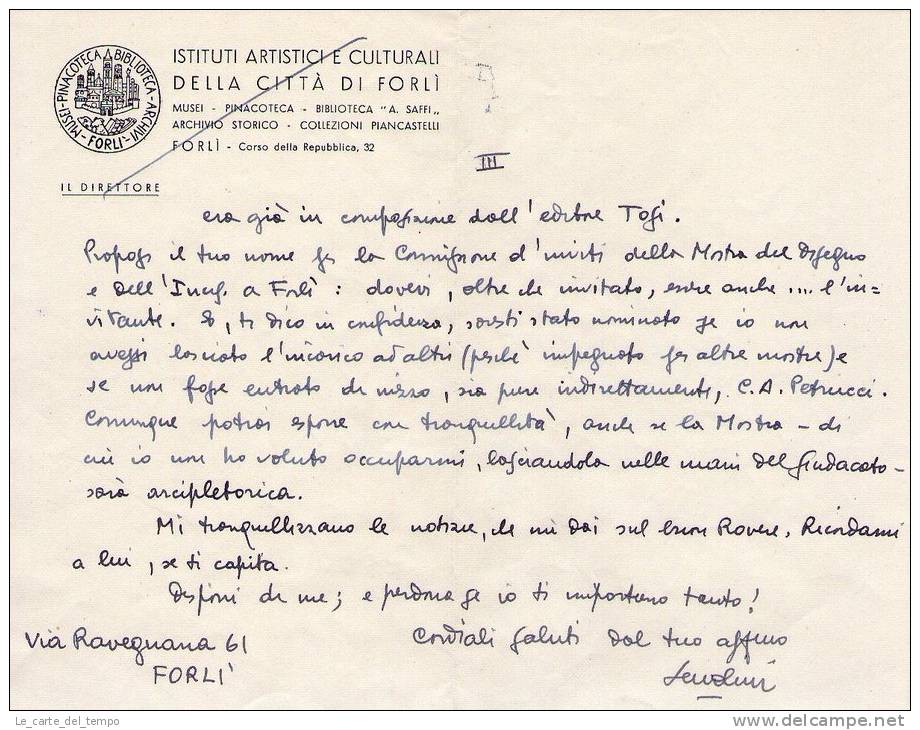 MUSEI - PINACOTECA - BIBLIOTECA - ARCHIVI
- FORLÌ -
ISTITUTI ARTISTICI E CULTURALI
DELLA CITTÀ DI FORLÌ
MUSEI - PINACOTECA - BIBLIOTECA "A. SAFFI„
ARCHIVIO STORICO - COLLEZIONI PIANCASTELLI
FORLÌ - Corso della Repubblica, 32
IL DIRETTORE
III
era già in composizione dall'editore Tosi.
Proposi il tuo nome per la Commissione d'inviti della Mostra del Disegno
e dell'Incis. a Forlì: dovevi, oltre che invitato, essere anche .... l'in-
vitante. E, ti dico in confidenza, saresti stato nominato se io non
avessi lasciato l'incarico ad altri (perchè impegnato per altre mostre) e
se non fosse entrato di mezzo, sia pure indirettamente, C. A. Petrucci.
Comunque potrai esporre con tranquillità, anche se la Mostra - di
cui io non ho voluto occuparmi, lasciandola nelle mani del Sindacato -
sarà arcipletorica.
Mi tranquillizzano le notizie, che mi dai sul buon Rovere. Ricordami
a lui, se ti capita.
Disponi di me; e perdona se io ti importuno tanto!
Cordiali saluti dal tuo affmo
Via Ravegnana 61
FORLÌ
Le_carte_del_tempo
delcampe.net